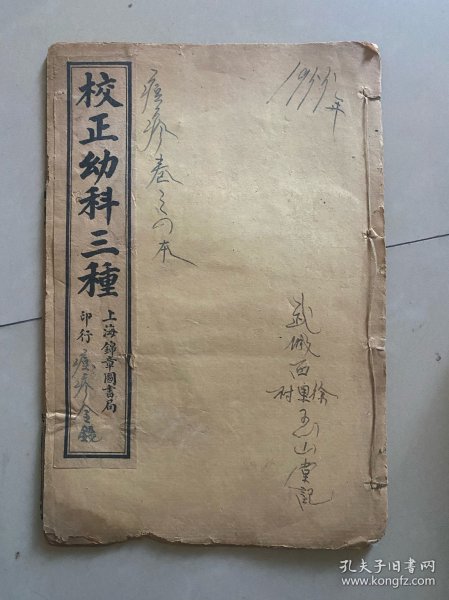 校正幼科三種
上海錦章圖書局
印行
痘疹金鏡
痘疹卷之四本
1955年
武城西
徐里村
玉山堂記
孔夫子旧书网
www.kongfz.com